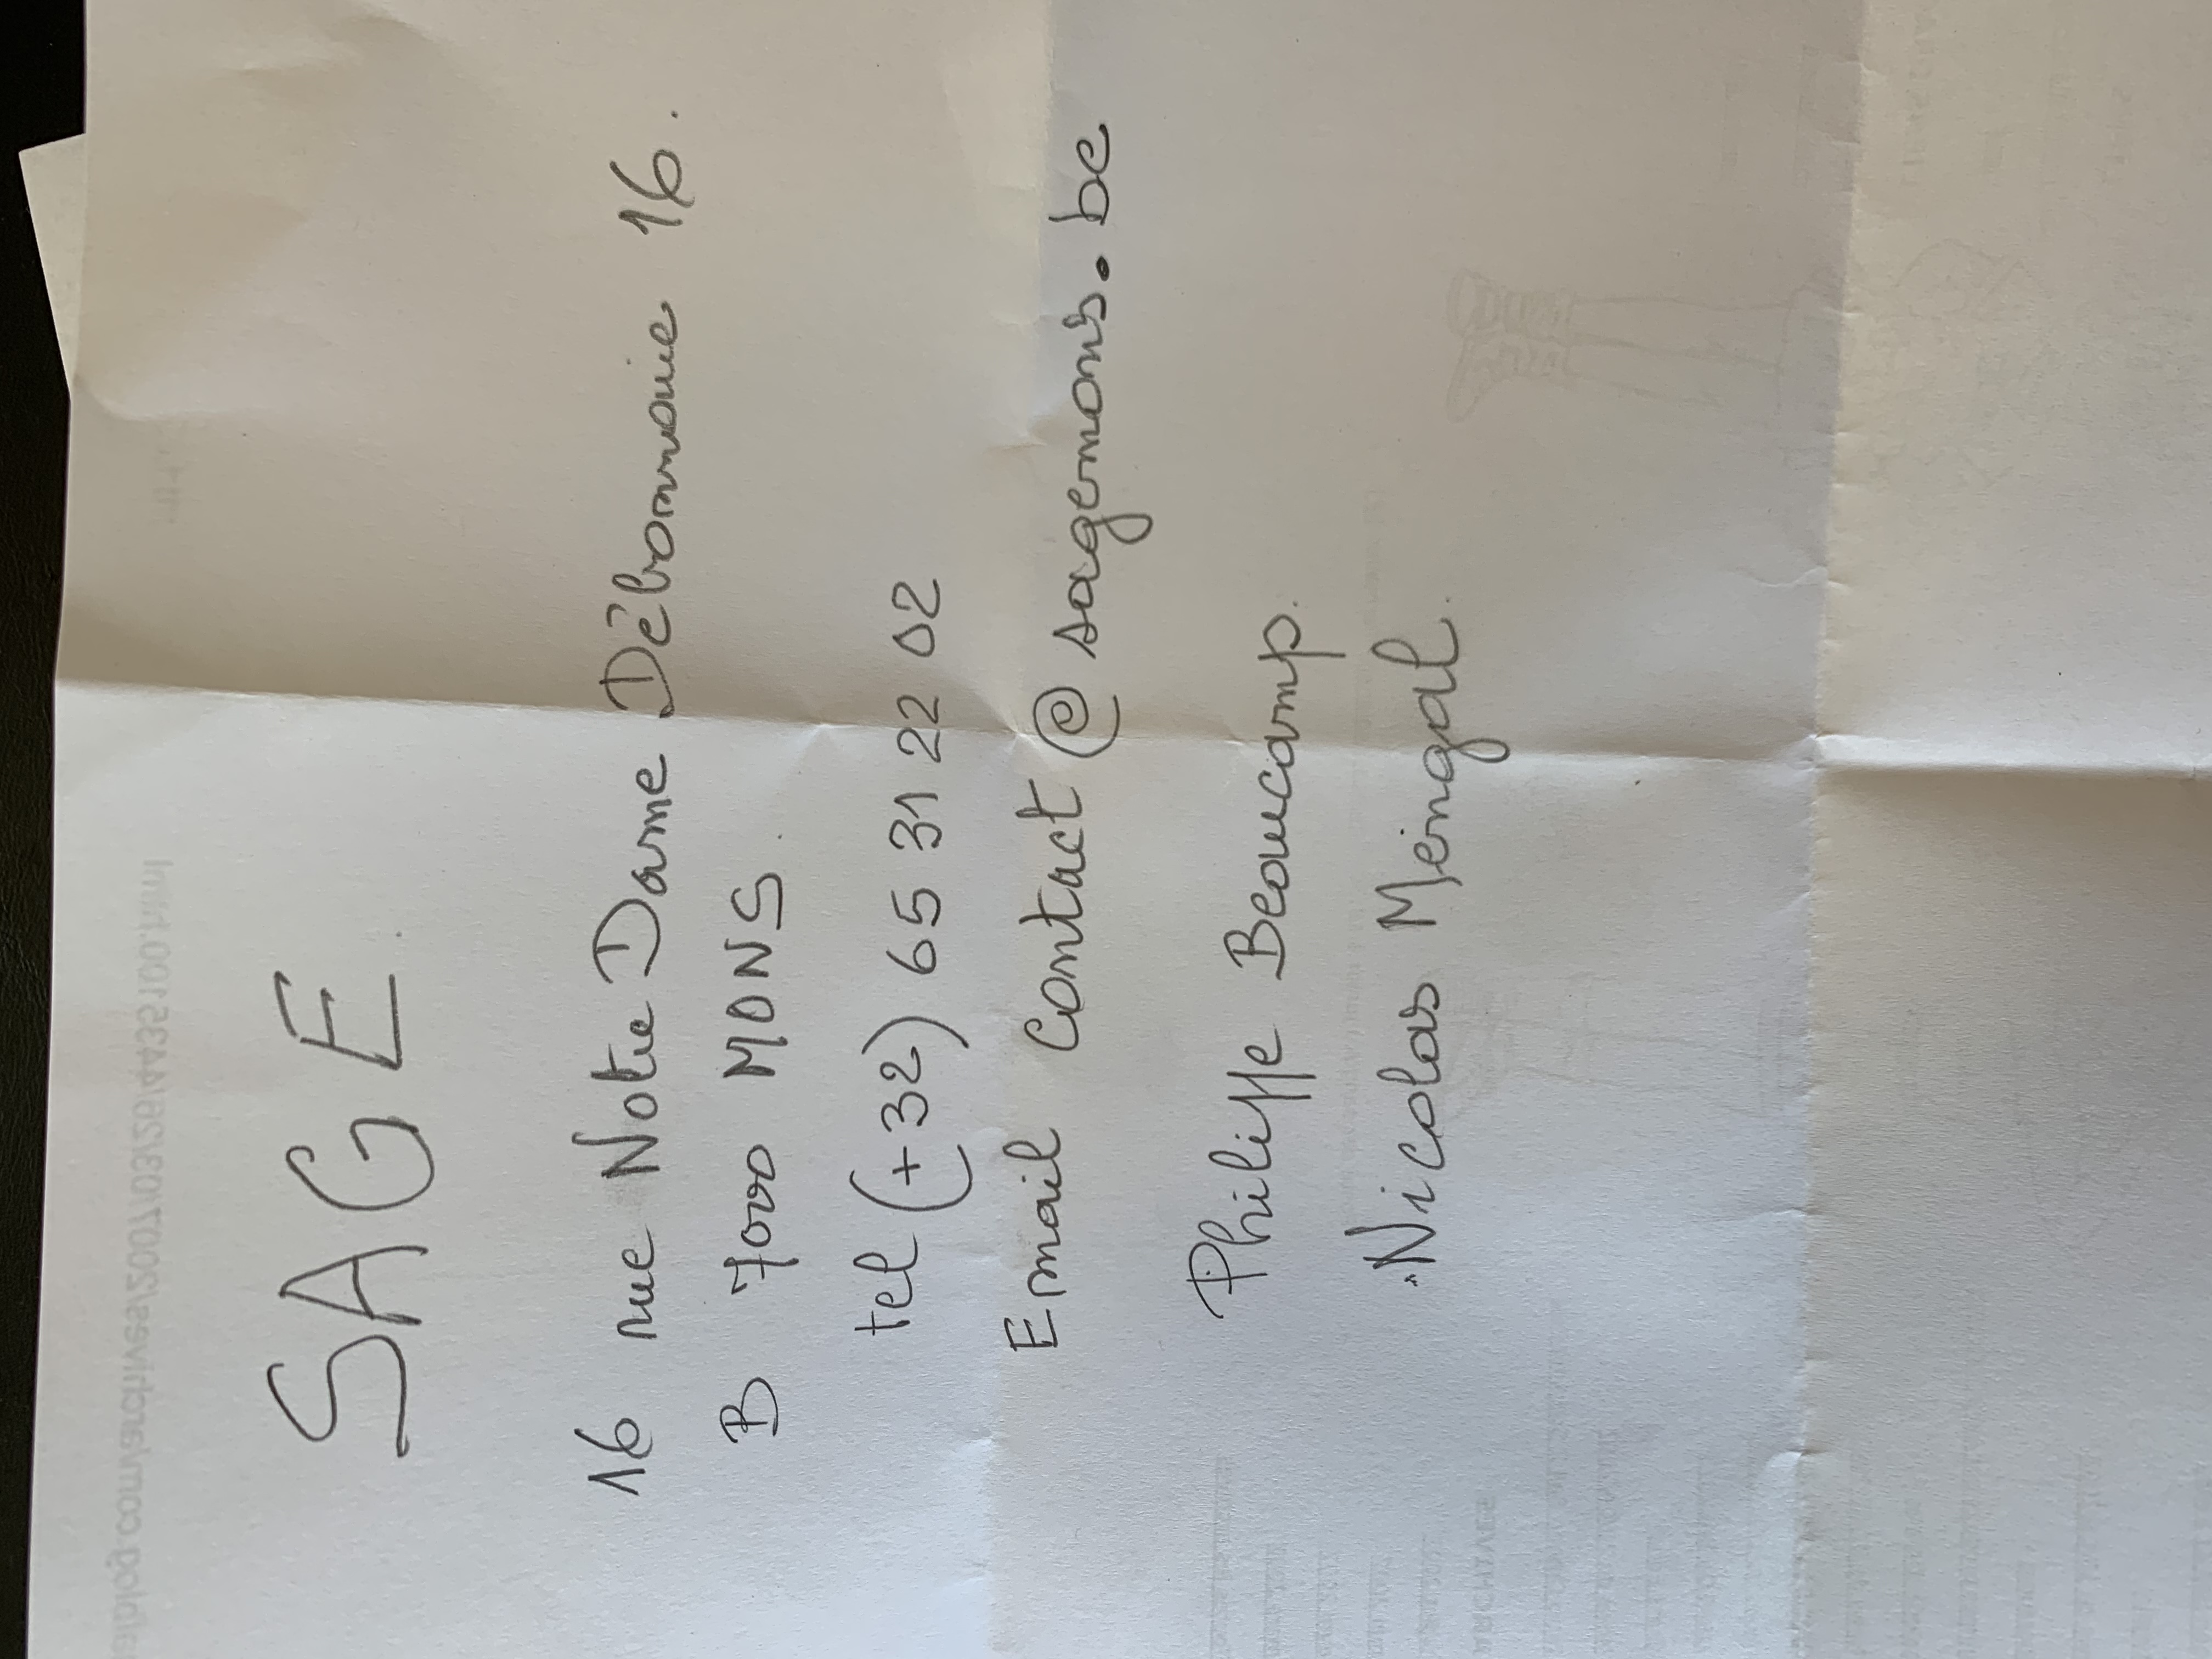 SAGE.
16 rue Notre Dame Débonnaire 16.
B 7000 MONS.
tel (+32) 65 31 22 02
Email Contact@sagemons.be
Philippe Beaucamp.
Nicolas Mengal.